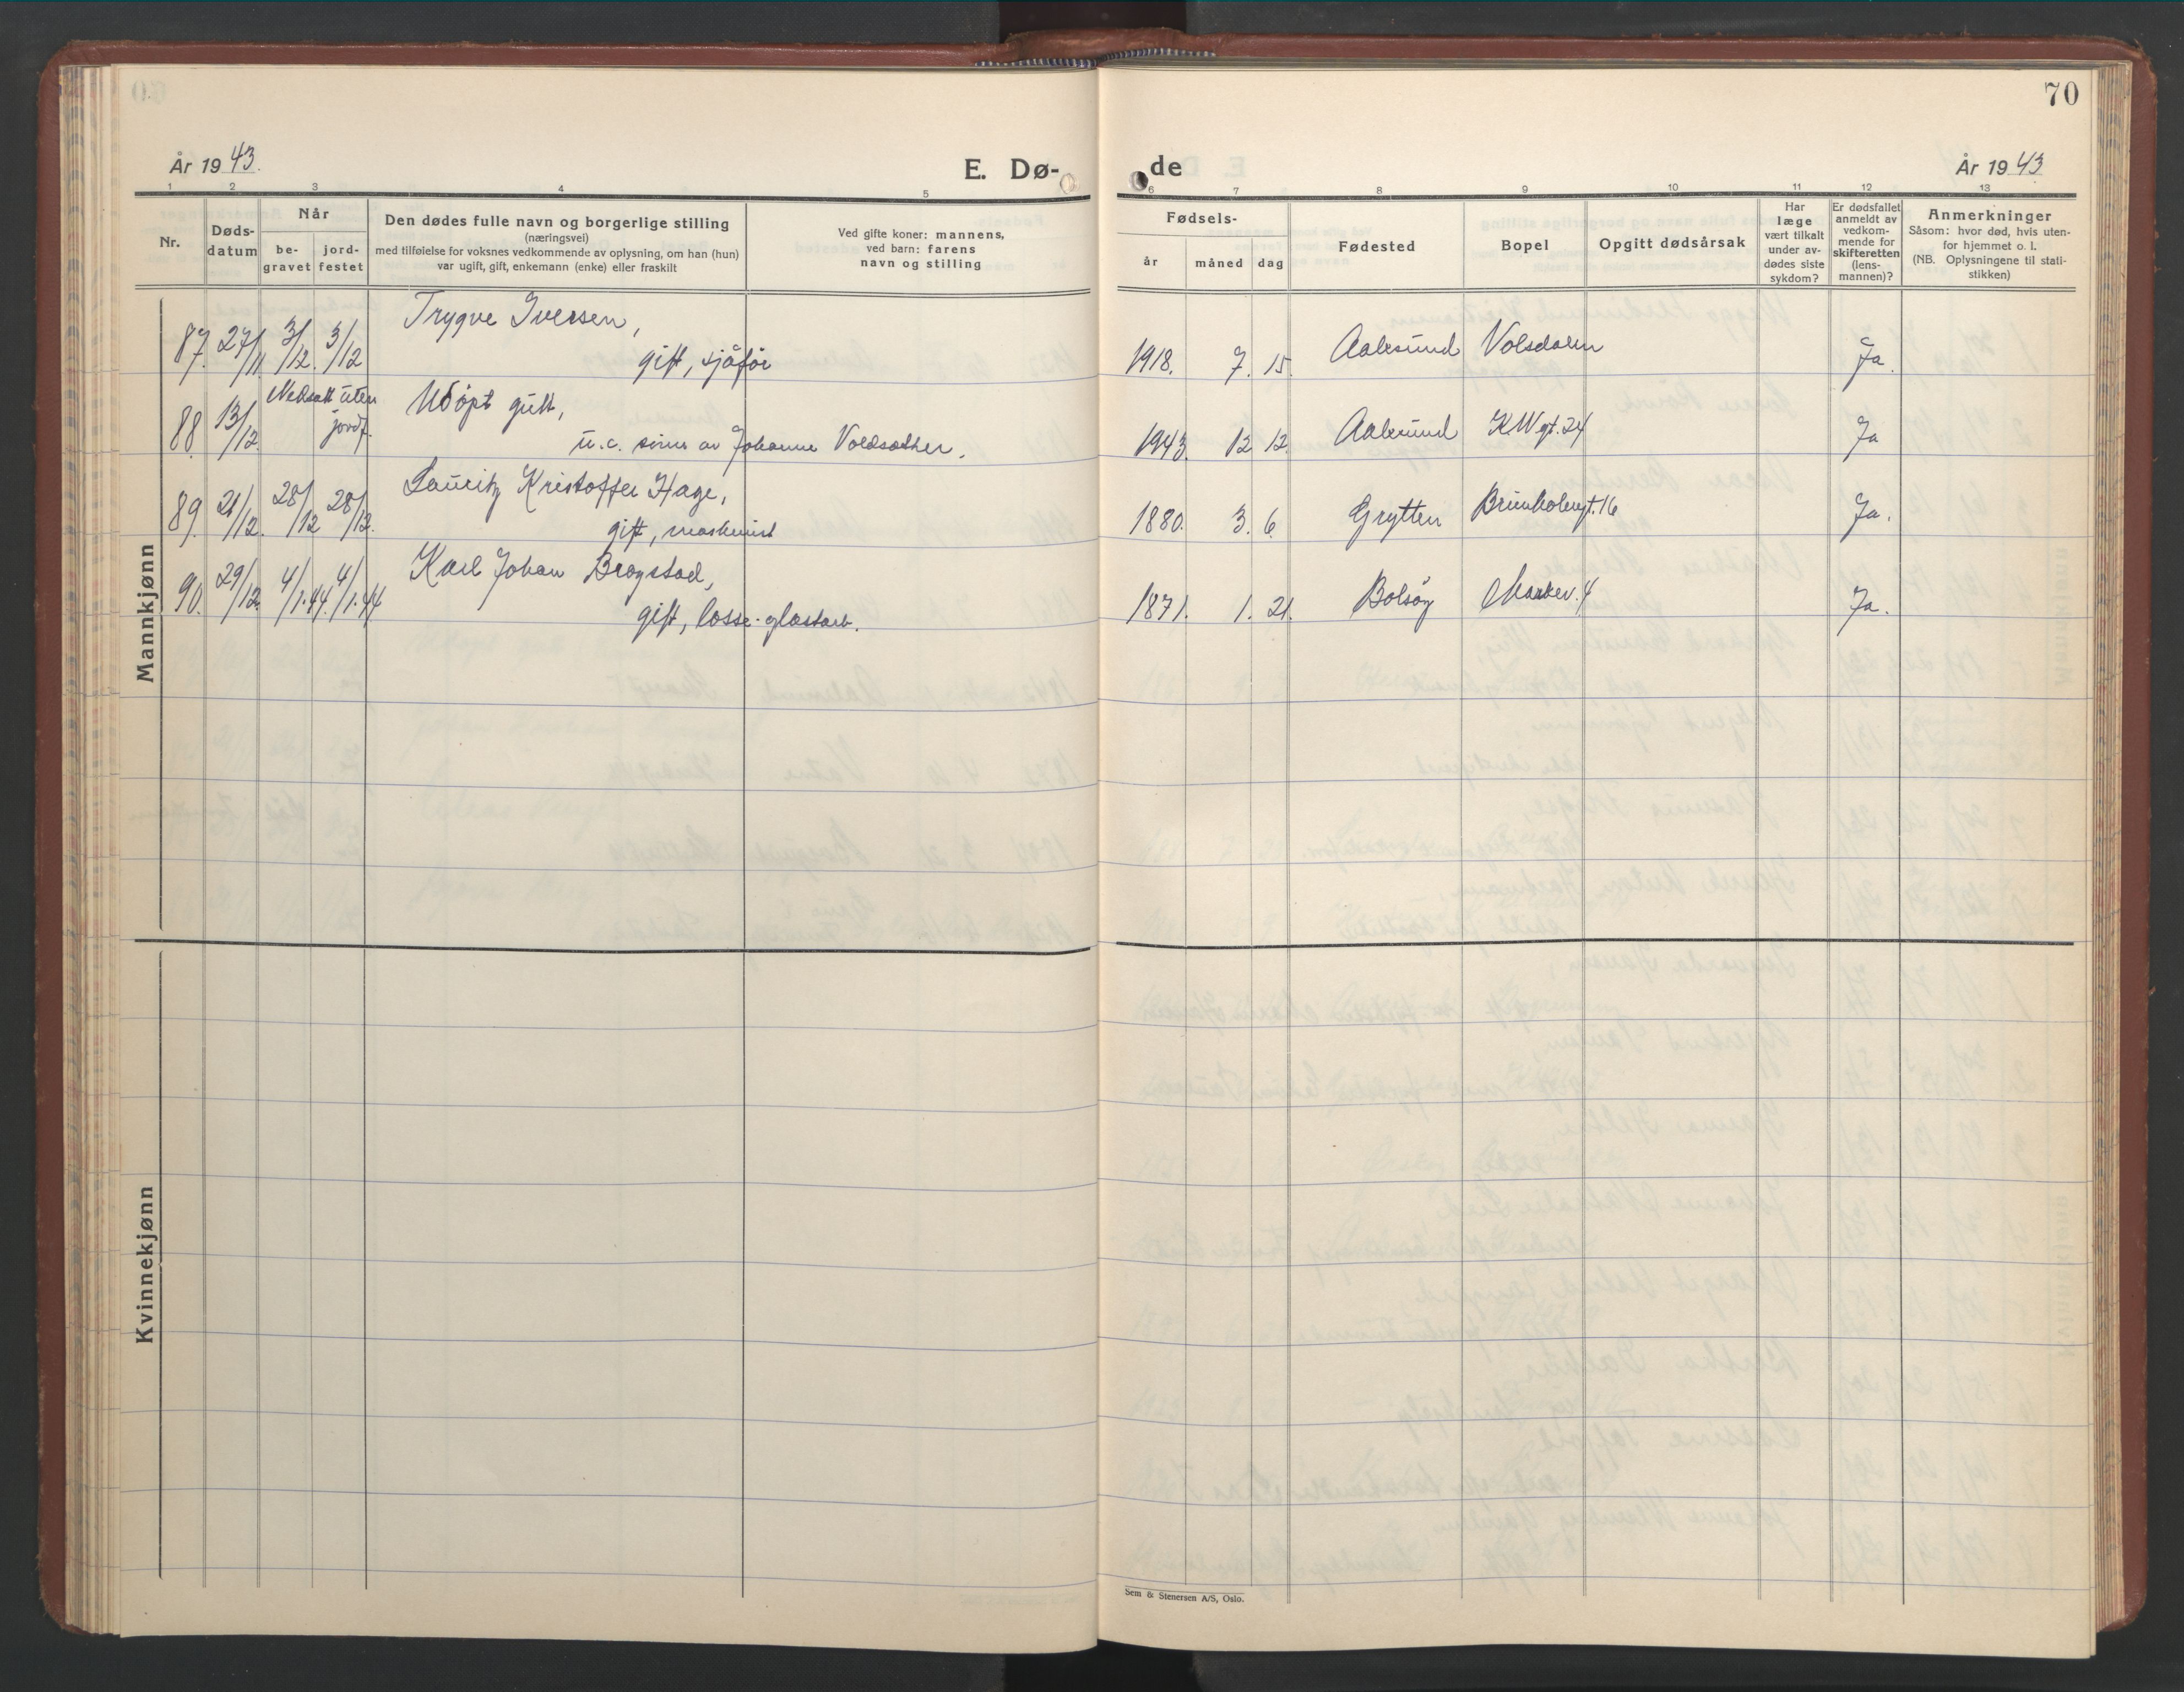 70
År 1943.
E. Dø-
de
År 1943
1 2 3 4 5 6 7 8 9 10 11 12 13
Nr.
Døds-
datum
Når
be-
gravet
jord-
festet
Den dødes fulle navn og borgerlige stilling
(næringsvei)
med tilføielse for voksnes vedkommende av oplysning, om han (hun)
var ugift, gift, enkemann (enke) eller fraskilt
Ved gifte koner: mannens,
ved barn: farens
navn og stilling
Fødsels-
år
måned
dag
Fødested
Bopel
Opgitt dødsårsak
Har
læge
vært tilkalt
under av-
dødes siste
sykdom?
Er dødsfallet
anmeldt av
vedkom-
mende for
skifteretten
(lens-
mannen)?
Anmerkninger
Såsom: hvor død, hvis uten-
for hjemmet o. l.
(NB. Oplysningene til stati-
stikken)
Mannkjønn
87. 27/11 3/12. 3/12 Trygve Iversen,
gift, sjåfør
1918. 7. 15. Aalesund Volsdalen Ja.
88. 13/12. Nedsatt uten
jordf.
Udøpt gutt,
u.e. sønn av Johanne Voldsæther.
1943. 12 12. Aalesund KWgt.24 Ja
89. 21/12. 28/12 28/12. Lauritz Kristoffer Hage,
gift, maskinist
1880. 3. 6. Grytten Brunholmgt.16 Ja.
90. 29/12. 4/1.44. 4/1.44 Karl Johan Brogstad,
gift, losse-
1871. 1. 21. Bolsøy Markev. 4 Ja.
Kvinnekjønn
Sem & Stenersen A/S, Oslo.